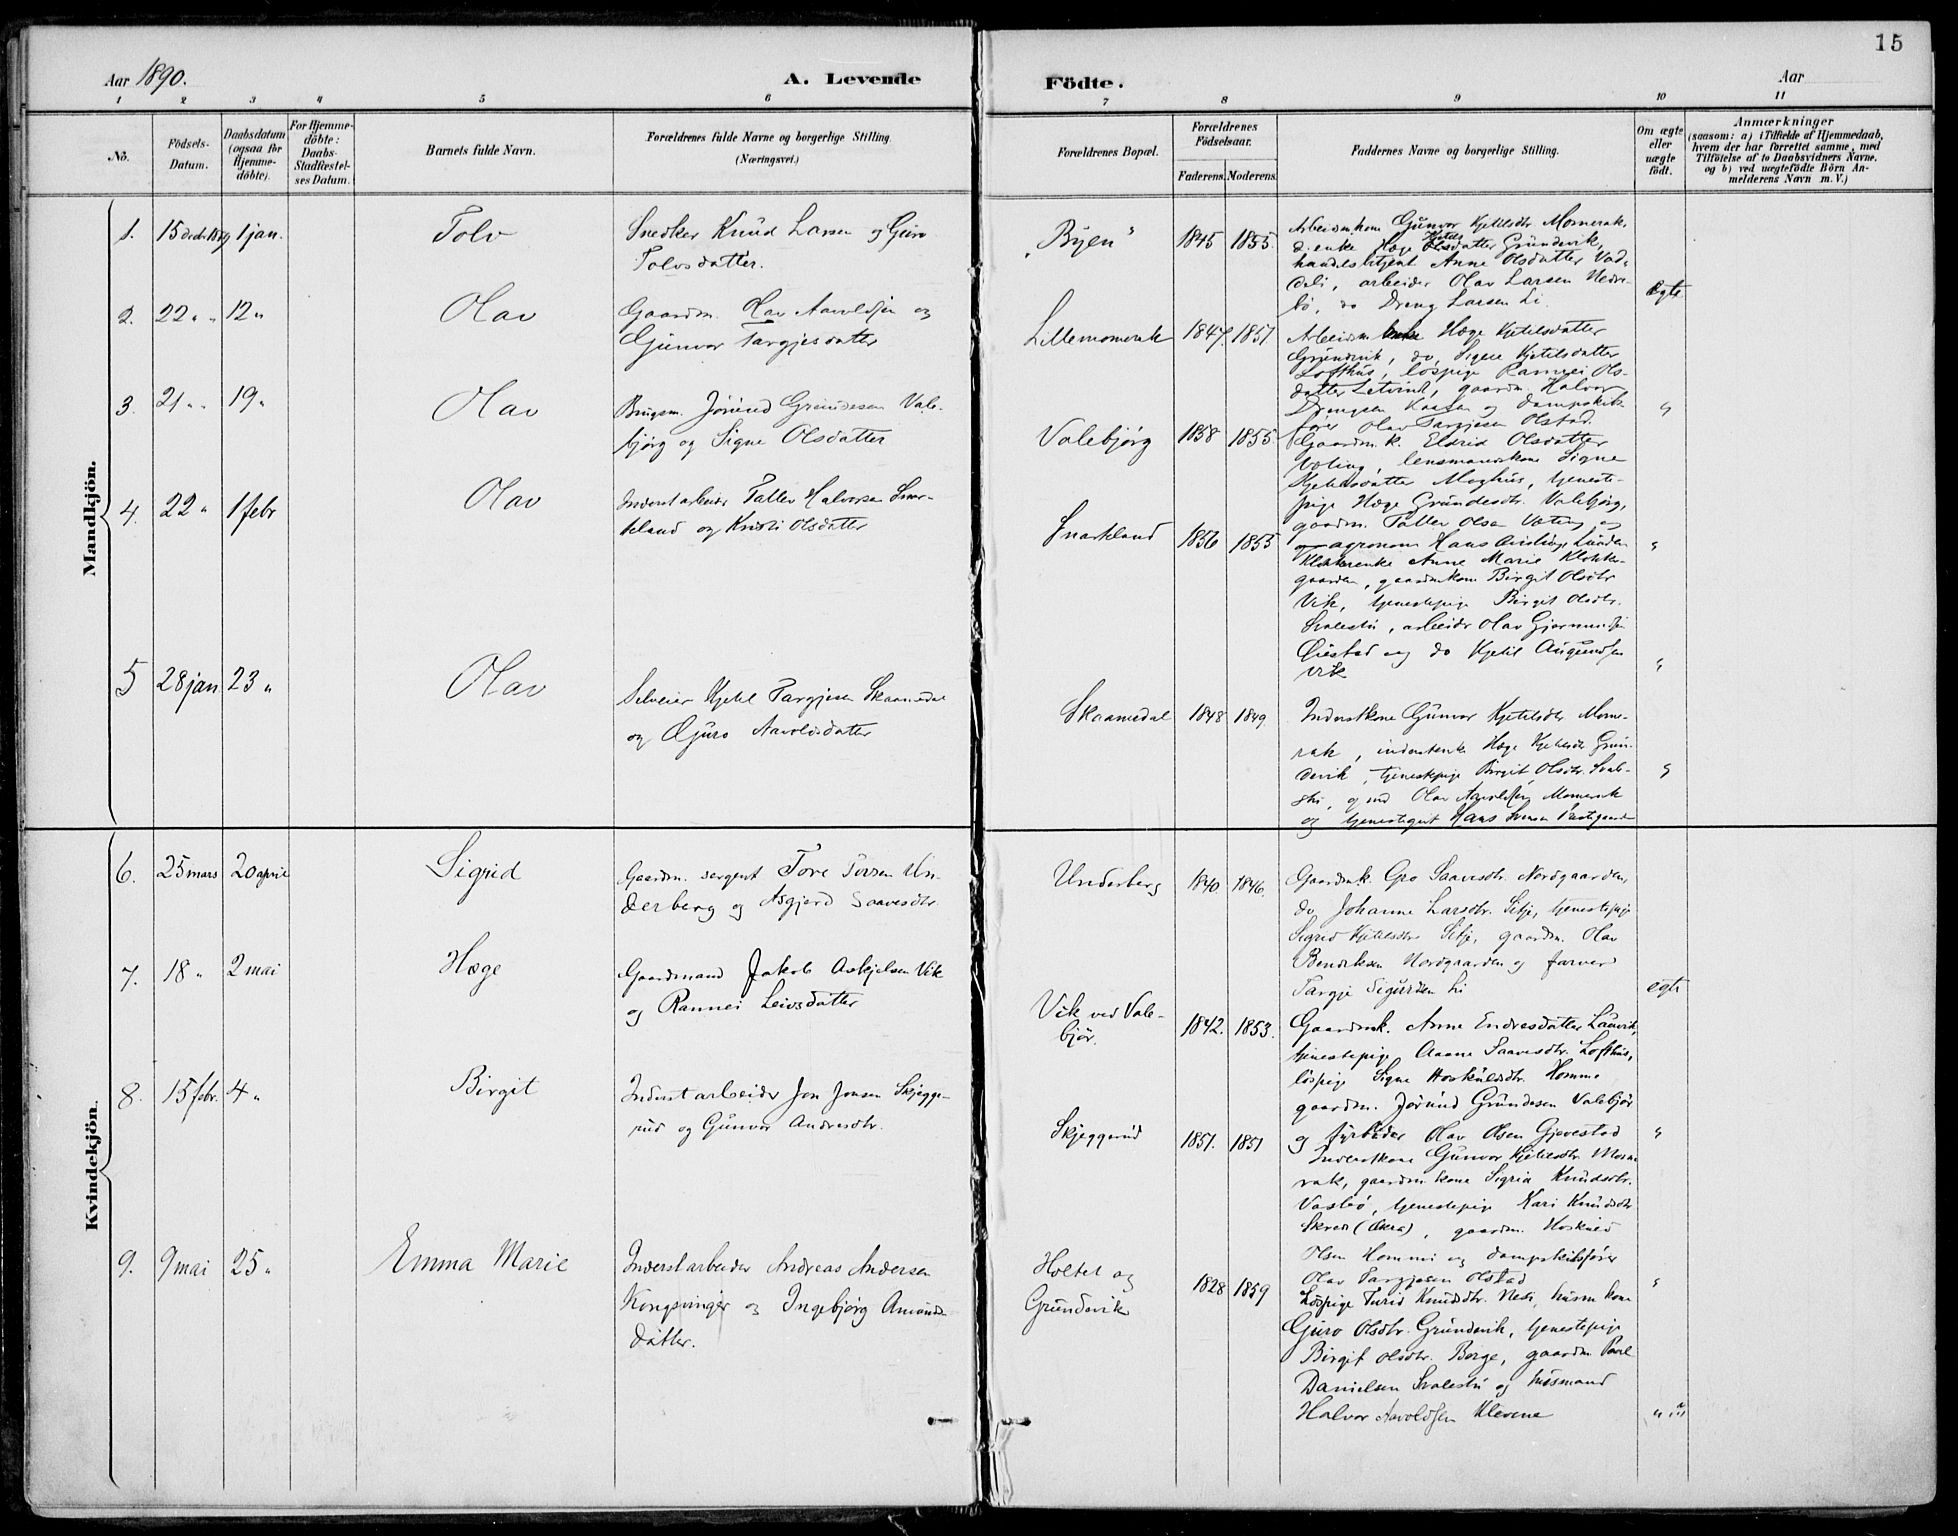 15
Aar 1890.
A. Levende
Födte.
Aar
1 2 3 4 5 6
7 8 9 10 11
No.
Födsels-
Datum.
Daabsdatum
(ogsaa for
Hjemme-
döbte).
For Hjemme-
döbte:
Daabs-
Stadfæstel-
ses Datum.
Barnets fulde Navn.
Forældrenes fulde Navne og borgerlige Stilling.
(Næringsvei.)
Forældrenes Bopæl.
Forældrenes
Födselsaar.
Faderens. Moderens.
Faddernes Navne og borgerlige Stilling.
Om ægte
eller
uægte
født.
Anmærkninger
(saasom: a) i Tilfælde af Hjemmedaab,
hvem der har forrettet samme, med
Tilföielse af to Daabsvidners Navne.
og b) ved uægtefödte Börn An-
melderens Navn m. V.)
Mandkjön.
1. 15 decb 1889 1 jan. Tolv
Snedker Knud Larsen og Guro
Tolvsdatter.
"Byen" 1845 1855.
Arbeidsmkone Gunvor Kjetilsdtr Momerak,
do enke Hæge Kjetils Olsdatter Grundevik,
handelsbetjent Anne Olsdatter Vad-
deli, arbeider Olav Larsen Nedre-
bö, do Dreng Larsen Li.
ægte
2. 22 " " 12 " Olav
Gaardm. Olav Aavoldsen og
Gunvor Targjesdatter
Lillemomerak 1847. 1851
Arbeidm enke Hæge Kjetilsdatter
Grundevik, do, Signe Kjetilsdatter
Lofthus, löspige Rannei Ols-
datter Letvind, gaardm. Halvor
Drengsen Kaasen og dampskibs-
förer Olav Targjesen Olstad.
"
3. 21 " " 19 " Olav
Brugsm. Jörund Grundesen Vale-
björg og Signe Olsdatter
Valebjörg 1858 1855.
Gaardm. k. Eldrid Olsdatter
Voting, lensmandskone Signe
Kjetilsdatter Moghus, tjeneste-
pige Hæge Grundesdtr. Valebjörg,
gaardm. Tallev Olsen Voting og
og agronom Hans Lunden
"
4. 22 " 1 febr Olav
Inderstarbeider Tallev Halvorsen Snar-
teland og Kristi Olsdatter
Snarteland 1856 1855
Klokkerenke Anne Marie Klokker-
gaarden, gaardmkone Birgit Olsdtr
Vik, tjenestepige Birgit Olsdtr.
Svalestu, arbeider Olav Gjermundsen
Öiestad og do Kjetil Augundsen
Vik
"
5 28 jan 23 " Olav
Selveier Kjetil Targjesen Skaamedal
og Gjuro Aavoldsdatter
Skaamedal 1848 1849
Inderstkone Gunvor Kjetilsdtr Mome-
rak, inderstenke Hæge Kjetilsdtr Grun-
devik, tjenestepige Birgit Olsdtr. Svale-
stu, Olav Aavoldsen Momerak
og tjenestegut Hans Svensen Prestgaard
"
Kvindekjön.
6. 25 mars 20 april Sigrid
Gaardm. sergent Tore Torsen Un-
derberg og Asgjerd Saavesdtr.
Underberg 1840 1846.
Gaardmk. Gro Saavesdtr. Nordgaarden,
do, Johanne Larsdtr. Setje, tjenestepige
Sigrid Kjetilsdtr Setje, gaardm. Olav
Bendiksen Nordgaarden og farver
Targje Sigurdsen Li
egte
7. 18 " 2 mai Hæge
Gaardmand Jakob Askjelsen Vik
og Rannei Leivsdatter
Vik ved Vale-
björ. 1842. 1853.
Gaardmk. Anne Endresdatter Lauvik,
tjenestepige Aanne Saavesdtr. Lofthus,
löspige Signe Hoskuldsdtr. Homme
gaardm. Jörund Grundesen Valebjör
og fyrböder Olav Olsen Gjevestad
"
8. 15 febr. 4 " Birgit
Inderstarbeider Jon Jonsen Skjegge-
rud og Gunvor Andresdtr.
Skjeggerud 1851. 1851
Inderstkone Gunvor Kjetilsdtr. Mome-
rak, gaardm. kone Sigrid Knudsdtr.
Vasbö, tjenestepige Kari Knudsdtr
Skree (Ökra), gaardm. Hoskuld
Olsen Hommi og dampskibsförer
Olav Targjesen Olstad
"
9. 9 mai 25 " Emma Marie
Inderstarbeider Andreas Andersen
Kongsvinger og Ingebjörg Amunds-
datter.
Holtet og
Grundevik 1828 1859
Löspige Turid Knudsdtr. Nesi, husm kone
Gjuro Olsdtr. Grundevik, tjenestepige
Birgit Olsdtr. Berge, gaardm. Povel
Danielsen Svalestu og husmand
Halvor Aavoldsen Klevene